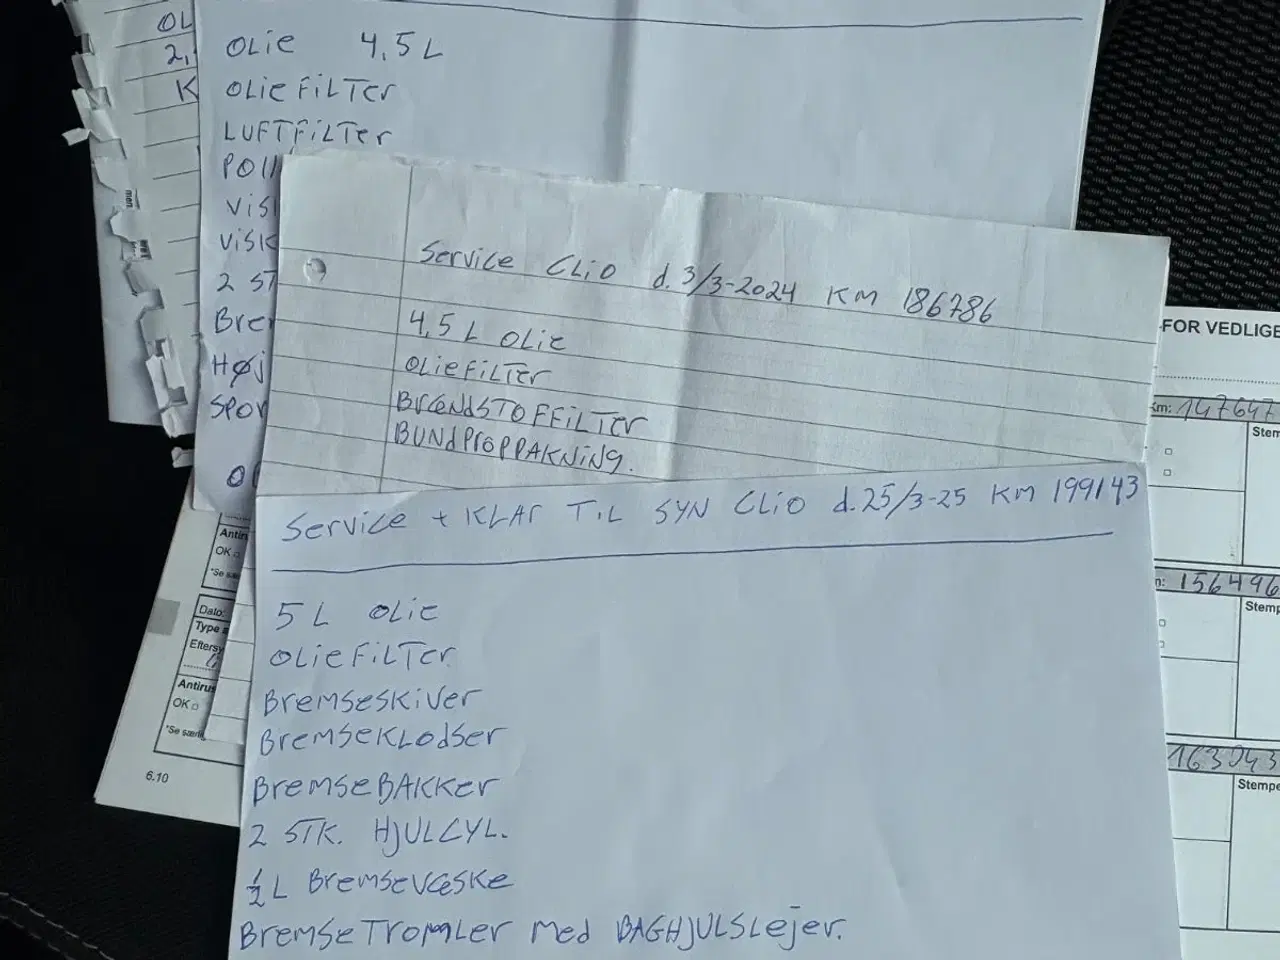 OL
2,
K
OLIE 4,5 L
OLIEFILTER
LUFTFILTER
POLL
VISK
2 ST
BREM
HØJ
SPOR
Service CLIO d. 3/3-2024 KM 186786
4,5 L OLIE
OLIEFILTER
BRÆNDSTOFFILTER
BUNDPROPPAKNING.
Service + KLAR TIL SYN CLIO d. 25/3-25 KM 199143
5 L OLIE
OLIEFILTER
BREMSESKIVER
BREMSEKLODSER
BREMSEBAKKER
2 STK. HJULCYL.
½ L BREMSEVÆSKE
BREMSETROMLER MED BAGHJULSLEJER.
FOR VEDLIGE
Km: 147647
Stem
156496
Stemp
163043
Stempe
Antirus
OK
*Se sær
Dato:
Type
Eftersy
Antirus
OK
*Se særl
6.10